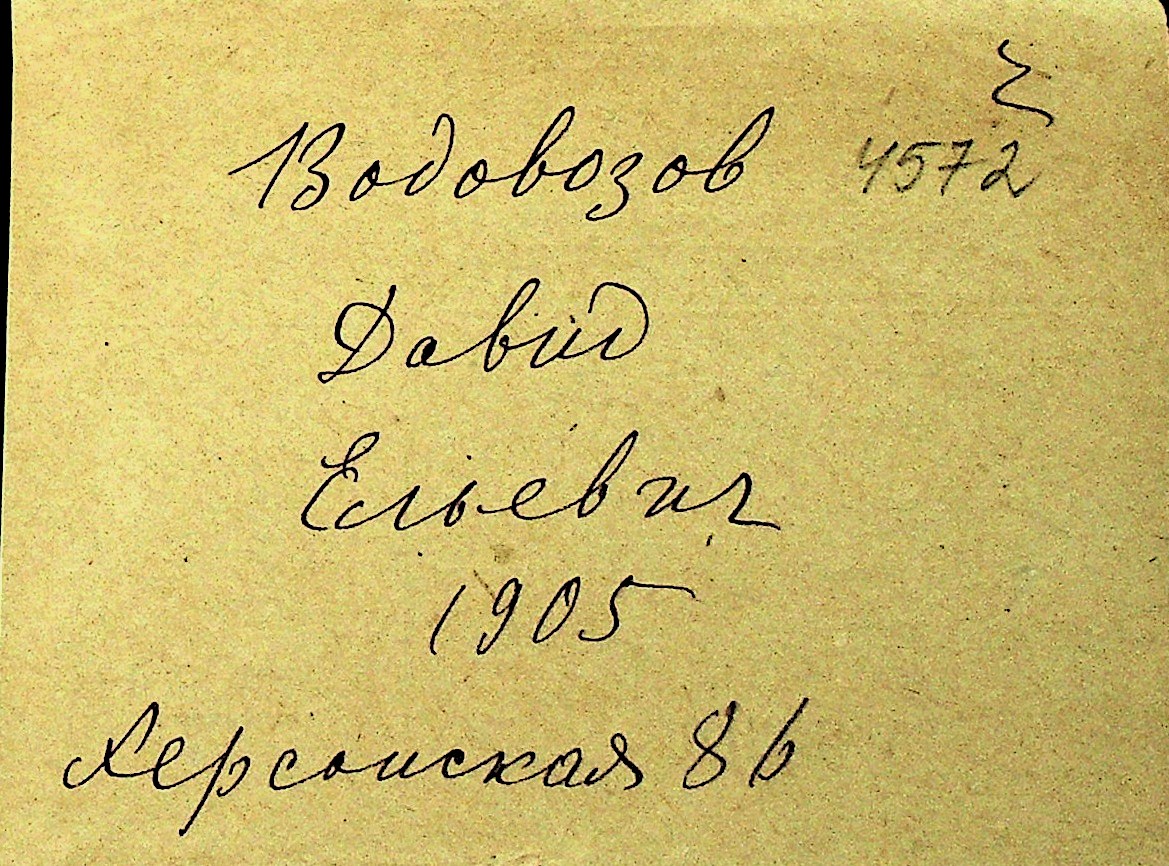 Водовозов 4572
Давид
Ельевич
1905
Херсонская 86